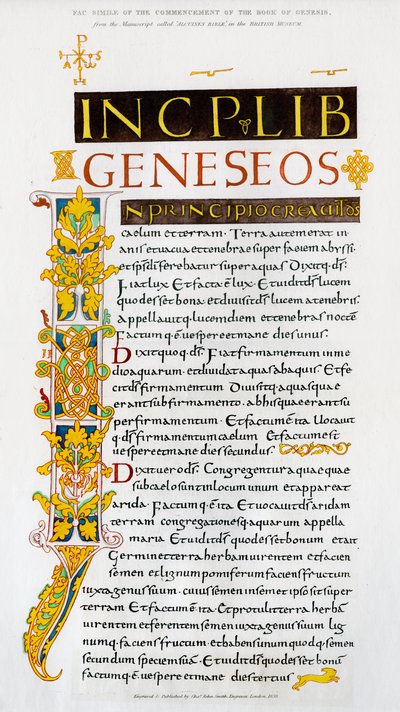 FAC SIMILE OF THE COMMENCEMENT OF THE BOOK OF GENESIS,
from the Manuscript called "ALCUINES BIBLE", in the BRITISH MUSEUM.
P
A
INCP LIB
GENESEOS
IN PRINCIPIO CREAUIT DS
caelum et terram. Terra autem erat in
anis et uacua et tenebrae super faciem abyssi.
et sps di ferebatur super aquas Dixitq. ds.
Fiat lux Et facta ē lux. Et uidit ds lucem
quod esset bona. et diuisit ds lucem a tenebris.
appellauitq. lucem diem et tenebras noctē
Factum q. ē. uespere et mane dies unus.
Dixit quoq. ds. Fiat firmamentum in me
dio aquarum. et diuidat aquas ab aquis. Et fe
cit ds firmamentum Diuisitq. aquas quae
erant sub firmamento. ab his quae erant su
per firmamentum. Et factum ē ita Uocauit
q. ds firmamentum caelum Et factum est
uespere et mane dies secundus.
Dixit uero ds. Congregentur aquae quae
sub caelo sunt in locum unum et appareat
arida. Factum q. ē ita Et uocauit ds aridam
terram congregationesq. aquarum appella
maria Et uidit ds quod esset bonum et ait
Germinet terra herbam uirentem et facien
semen et lignum pomiferum faciens fructum
iuxta genus suum. cuius semen in semet ipso sit super
terram Et factum ē ita. Et protulit terra herbā
uirentem et ferentem semen iuxta genus suum lig
numq. faciens fructum. et habens unum quodq. semen
secundum speciem suā. Et uidit ds quod esset bonū
factumq. ē uespere et mane dies tertius
Engraved & Published by Chas. John Smith, Engraver, London, 1830.